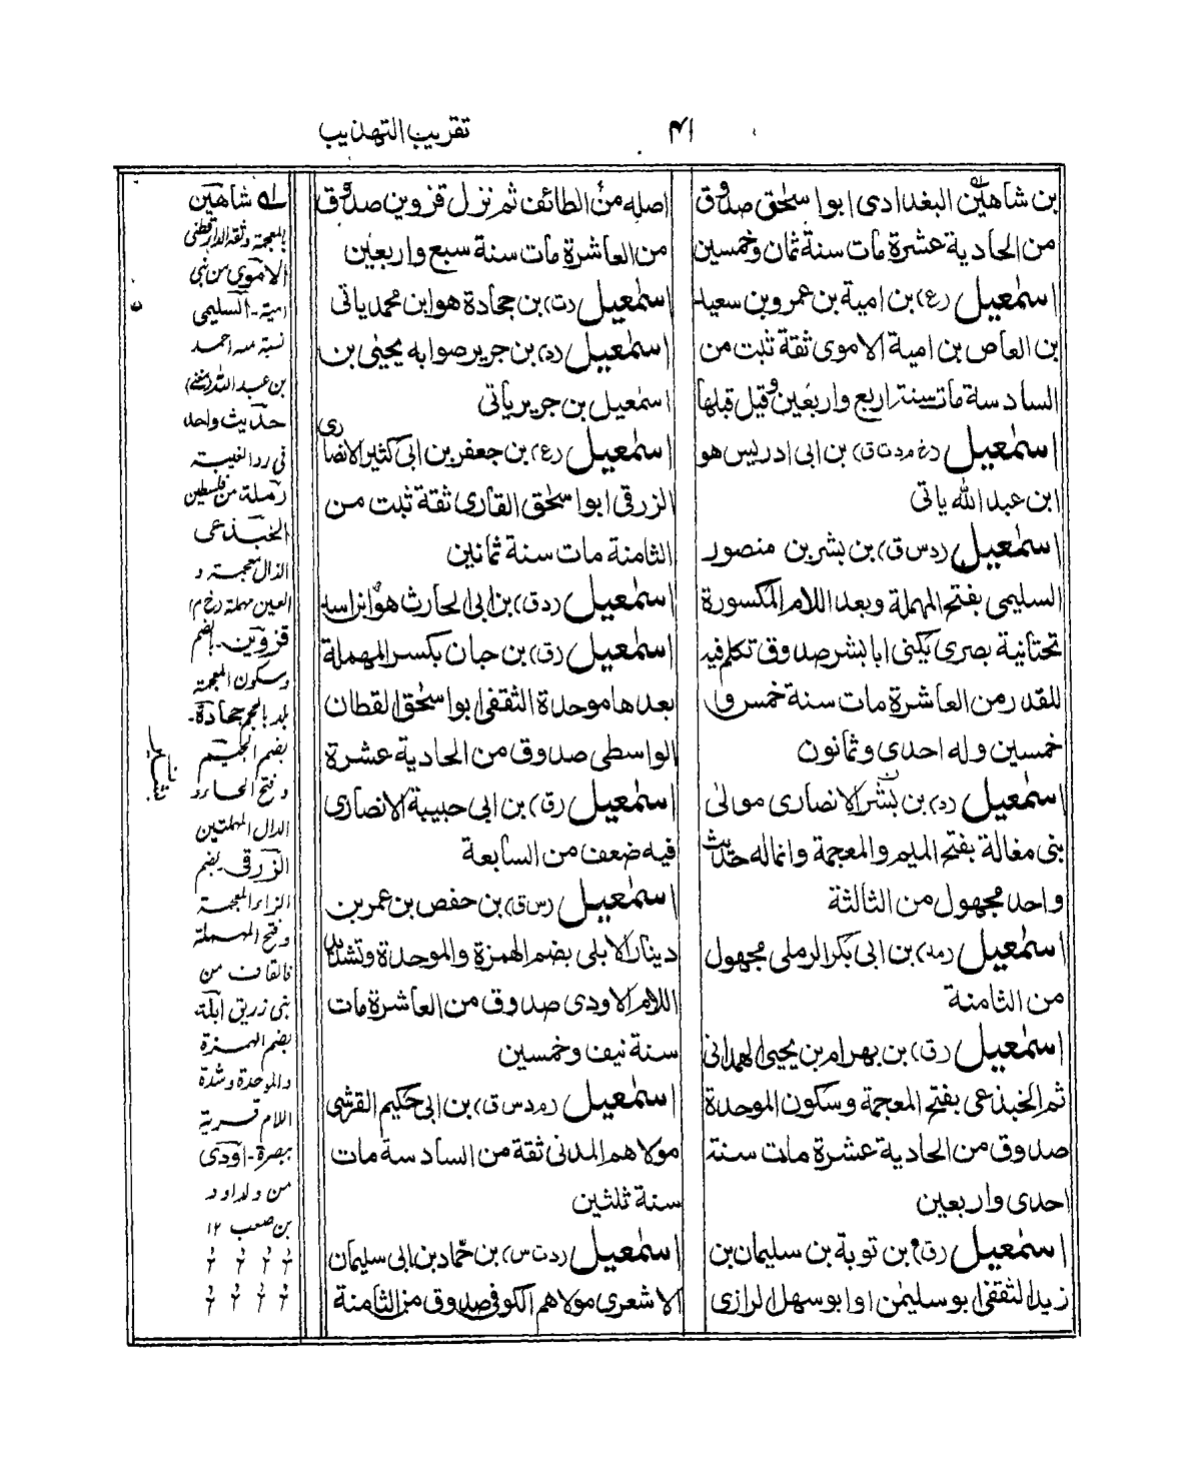 تقريب التهذيب
٤١
بن شاهين البغدادى ابوا سحٰق صدوق
من الحادية عشرة مات سنة ثمان وخمسين
اسمٰعيل (ع) بن امية بن عمرو بن سعيد
بن العاص بن امية الاموى ثقة ثبت من
السادسة مات سنة اربع واربعين وقيل قبلها
اسمٰعيل (خ م د ت ق) بن ابى ادريس هو
ابن عبد الله ياتى
اسمٰعيل (د س ق) بن بشر بن منصور
السليمى بفتح المهملة وبعد اللام المكسورة
تحتانية بصرى يكنى ابا بشر صدوق تكلم فيه
للقدر من العاشرة مات سنة خمس و
خمسين وله احدى وثمانون
اسمٰعيل (د) بن بشر الانصارى مولى
بنى مغالة بفتح الميم والمعجمة وانما له حديث
واحد مجهول من الثالثة
اسمٰعيل (مد) بن ابى بكر الرملى مجهول
من الثامنة
اسمٰعيل (ق) بن بهرام بن يحيى الهمدانى
ثم الخبذعى بفتح المعجمة وسكون الموحدة
صدوق من الحادية عشرة مات سنة
احدى واربعين
اسمٰعيل (ق) بن توبة بن سليمان بن
زيد الثقفى ابو سليمٰن او ابو سهل الرازى
اصله من الطائف ثم نزل قزوين صدوق
من العاشرة مات سنة سبع واربعين
اسمٰعيل (ت) بن جحادة هو ابن محمد ياتى
اسمٰعيل (د) بن جرير صوابه يحيىٰ بن
اسمٰعيل بن جرير ياتى
اسمٰعيل (ع) بن جعفر بن ابى كثير الانصارى
الزرقى ابوا سحٰق القارى ثقة ثبت من
الثامنة مات سنة ثمانين
اسمٰعيل (د ق) بن ابى الحارث هو ابن اسد
اسمٰعيل (ق) بن حبان بكسر المهملة
بعدها موحدة الثقفى ابوا سحٰق القطان
الواسطى صدوق من الحادية عشرة
اسمٰعيل (ق) بن ابى حبيبة الانصارى
فيه ضعف من السابعة
اسمٰعيل (س ق) بن حفص بن عمر بن
دينار الابلى بضم الهمزة والموحدة وتشديد
اللام الاودى صدوق من العاشرة مات
سنة نيف وخمسين
اسمٰعيل (م د س ق) بن ابى حكيم القرشى
مولاهم المدنى ثقة من السادسة مات
سنة ثلثين
اسمٰعيل (د ت س) بن حماد بن ابى سليمان
الاشعرى مولاهم الكوفى صدوق من الثامنة
له شاهين
بالمعجمة وثقه الدارقطنى
الاموى من بنى
امية - السليمى
نسبة
بن عبد الله
حديث واحد
فى رد الغيبة
رملة من فلسطين
الخبذعى
الذال معجمة و
العين مهملة
قزوين - بضم
وسكون المعجمة
بلد بالعجم جحادة -
بضم الجيم
وفتح الحاء و
الدال المهملتين
الزرقى بضم
الزاء المعجمة
وفتح المهملة
فالقاف من
بنى زريق ابلة
بضم الهمزة
والموحدة وشدة
اللام قرية
ببصرة - اودى
من ولد اود
بن صعب ١٢